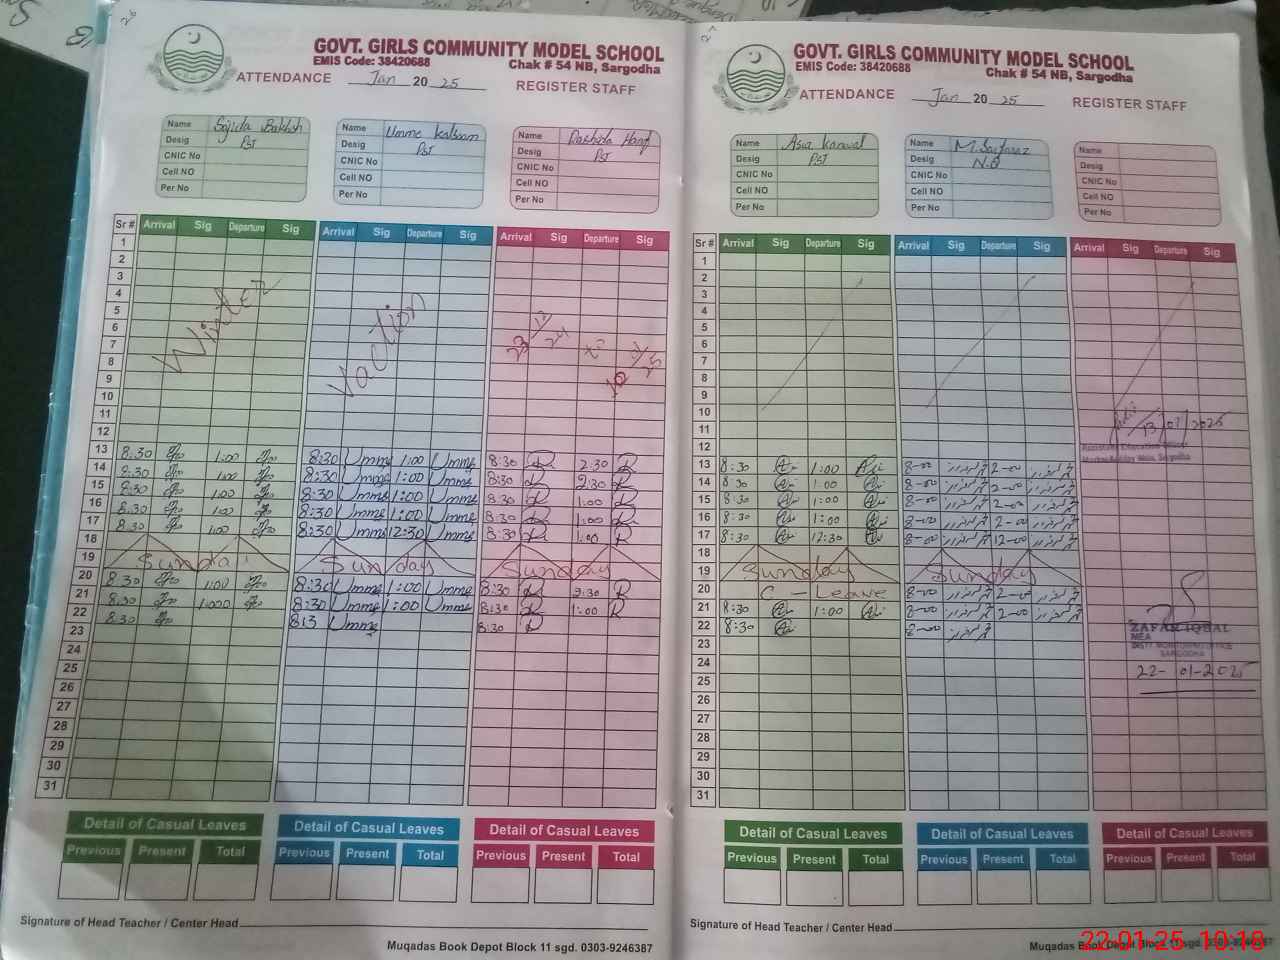 GOVT. GIRLS COMMUNITY MODEL SCHOOL
EMIS Code: 38420688 Chak # 54 NB, Sargodha
ATTENDANCE Jan 20 25 REGISTER STAFF
Name Sajida Bakhsh
Desig PST
CNIC No
Cell NO
Per No
Name Umme Kalsoom
Desig PST
CNIC No
Cell NO
Per No
Name
Desig PST
CNIC No
Cell NO
Per No
Sr # Arrival Sig Departure Sig Arrival Sig Departure Sig Arrival Sig Departure Sig
1
2
3
4
5
6
7
8
9
10
11
12
Winter Vaction 23/12/24 to 10/1/25
13 8:30 1:00 8:30 Umme 1:00 Umme 8:30 R 2:30 R
14 8:30 1:00 8:30 Umme 1:00 Umme 8:30 R 2:30 R
15 8:30 1:00 8:30 Umme 1:00 Umme 8:30 R 1:00 R
16 8:30 1:00 8:30 Umme 1:00 Umme 8:30 R 1:00 R
17 8:30 1:00 8:30 Umme 12:30 Umme 8:30 R 1:00 R
18
19 Sunday Sunday Sunday
20 8:30 1:00 8:30 Umme 1:00 Umme 8:30 R 2:30 R
21 8:30 1:00 8:30 Umme 1:00 Umme 8:30 R 1:00 R
22 8:30 8:3 Umme 8:30 R
23
24
25
26
27
28
29
30
31
Detail of Casual Leaves Detail of Casual Leaves Detail of Casual Leaves
Previous Present Total Previous Present Total Previous Present Total
Signature of Head Teacher / Center Head
Muqadas Book Depot Block 11 sgd. 0303-9246387
GOVT. GIRLS COMMUNITY MODEL SCHOOL
EMIS Code: 38420688 Chak # 54 NB, Sargodha
ATTENDANCE Jan 20 25 REGISTER STAFF
Name Asia Kanwal
Desig PST
CNIC No
Cell NO
Per No
Name M. Sarfaraz
Desig N.Q
CNIC No
Cell NO
Per No
Name
Desig
CNIC No
Cell NO
Per No
Sr # Arrival Sig Departure Sig Arrival Sig Departure Sig Arrival Sig Departure Sig
1
2
3
4
5
6
7
8
9
10
11
12
13/01/2025
13 8:30 1:00 8-00 2-00
14 8:30 1:00 8-00 2-00
15 8:30 1:00 8-00 2-00
16 8:30 1:00 8-00 2-00
17 8:30 12:30 8-00 12-00
18
19 Sunday Sunday
20 C - Leave 8-00 2-00
21 8:30 1:00 8-00 2-00
22 8:30 8-00
ZAFAR IQBAL
MEA
DISTT MONITORING OFFICE
SARGODHA
22-01-2025
23
24
25
26
27
28
29
30
31
Detail of Casual Leaves Detail of Casual Leaves Detail of Casual Leaves
Previous Present Total Previous Present Total Previous Present Total
Signature of Head Teacher / Center Head
Muqadas Book Depot Block 11 sgd. 0303-9246387
22-01-25 10:18